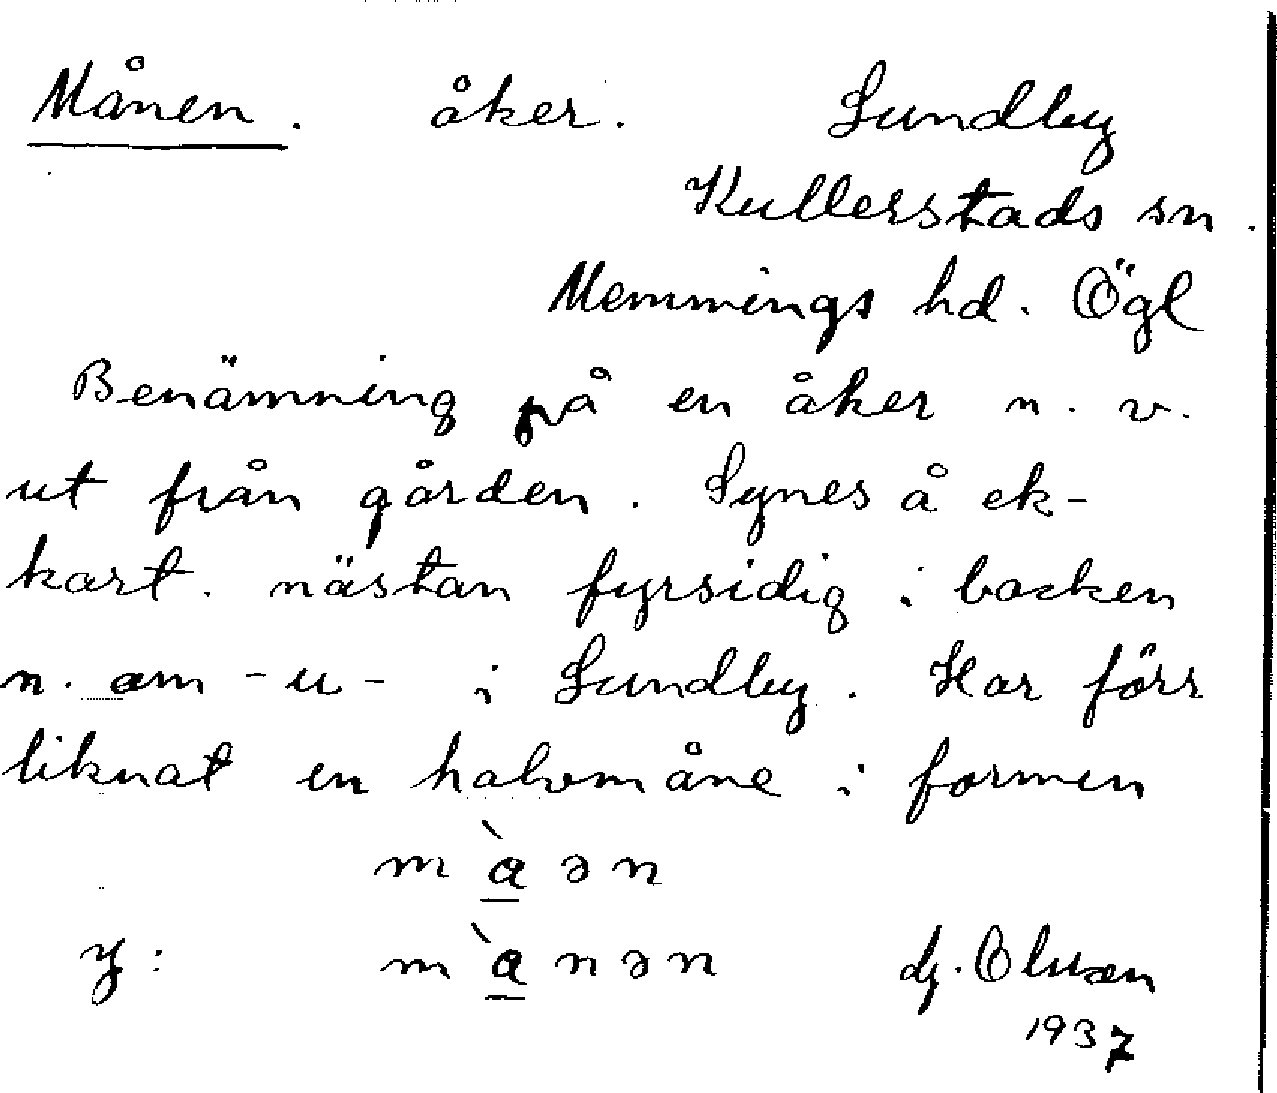 Månen. åker. Lundby
Kullerstads sn.
Memmings hd. Ögl
Benämning på en åker n. v.
ut från gården. Synes å ek-
kart. nästan fyrsidig i backen
n. om -u- i Lundby. Har förr
liknat en halvmåne i formen
m à ə n
y: m à n ə n Olsson
1937